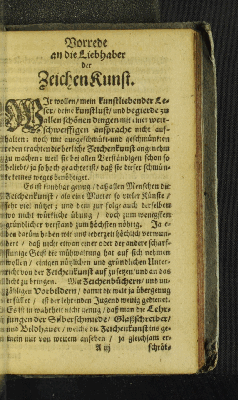 Vorrede
an die Liebhaber
der
Zeichen Kunst.
WIr wollen / mein kunstliebender Le-
ser / deine kunstlust / und begierde zu
allen schönen dingen mit einer weit-
schweiffigen ansprache nicht auf-
halten: noch mit aufgeschmückt und geschmünkten
reden erachten die herliche Zeichenkunst angenehm
zu machen: weil sie bei allen Verständigen schon so
beliebt / ja so hoch geachtet ist / daß sie derer schmün-
ke keines weges benöthiget.
Es ist kundbar genug / daß allen Menschen die
Zeichenkunst / als eine Mutter so vieler Künste /
sehr viel nützet / und dan zur folge auch derselben
wo nicht würkliche übung / doch zum wenigsten
gründlicher verstand zum höchsten nöhtig. Ja e-
ben darüm haben wir uns iederzeit höchlich verwun-
dert / daß nicht etwan einer oder der andere scharf-
sinnige Geist die mühwaltung hat auf sich nehmen
wollen / einigen nützlichen und gründlichen Unter-
richt von der Zeichenkunst auf zu setzen / und an das
licht zu bringen. Mit Zeichenbüchern / und un-
zähligen Vorbildern / damit die welt ja übergenug
erfüllet / ist der lehrenden Jugend wenig gedienet.
Es ist in wahrheit nicht genug / daß man die Lehr-
jungen der Silberschmiede / Glaßschreiber /
und Bildhauer / welche die Zeichenkunst ins ge-
mein nur von weitem ansehen / ja gleichsam er-
A iij schröt-